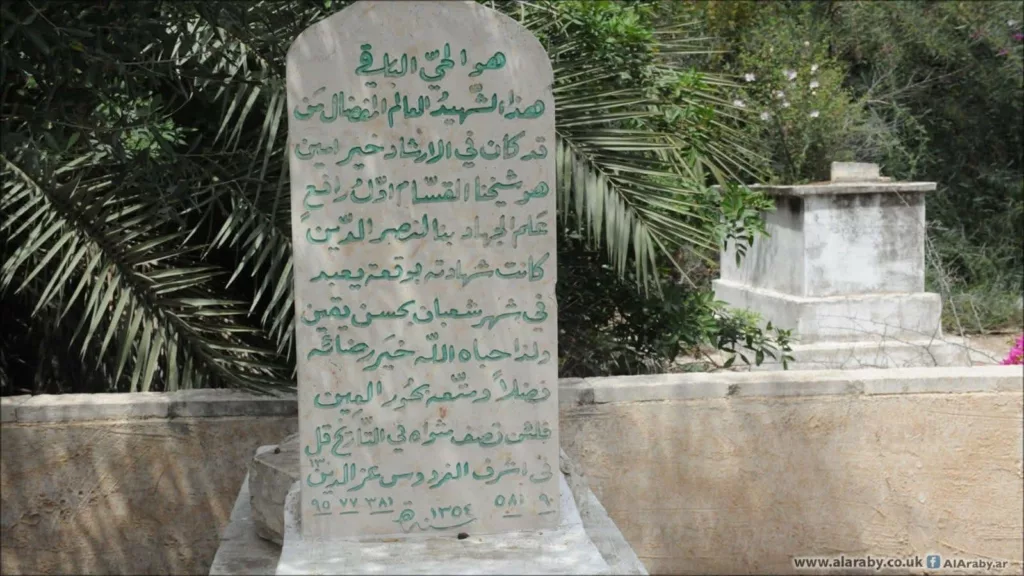 هو الحيّ الباقي
هذا الشّهيدُ العالم المفضال مَن
قد كان في الارشاد خير امين
هو شيخنا القسّام اوّل رافع
عَلم الجهاد بنا لنصر الدّين
كانت شهادته بوقعة يعبد
في شهر شعبان بحسن يقين
ولذا حباه اللّه خيرَ رضائه
فضلاً ومتّعه بحُور العين
فلئن تصف مثواه في التّاريخ قل
في اشرف الفردوس عز الدين
٩٠ ٥٨١ ٣٨١ ٧٧ ٩٥
سنة ١٣٥٤ هـ
www.alaraby.co.uk AlAraby.ar